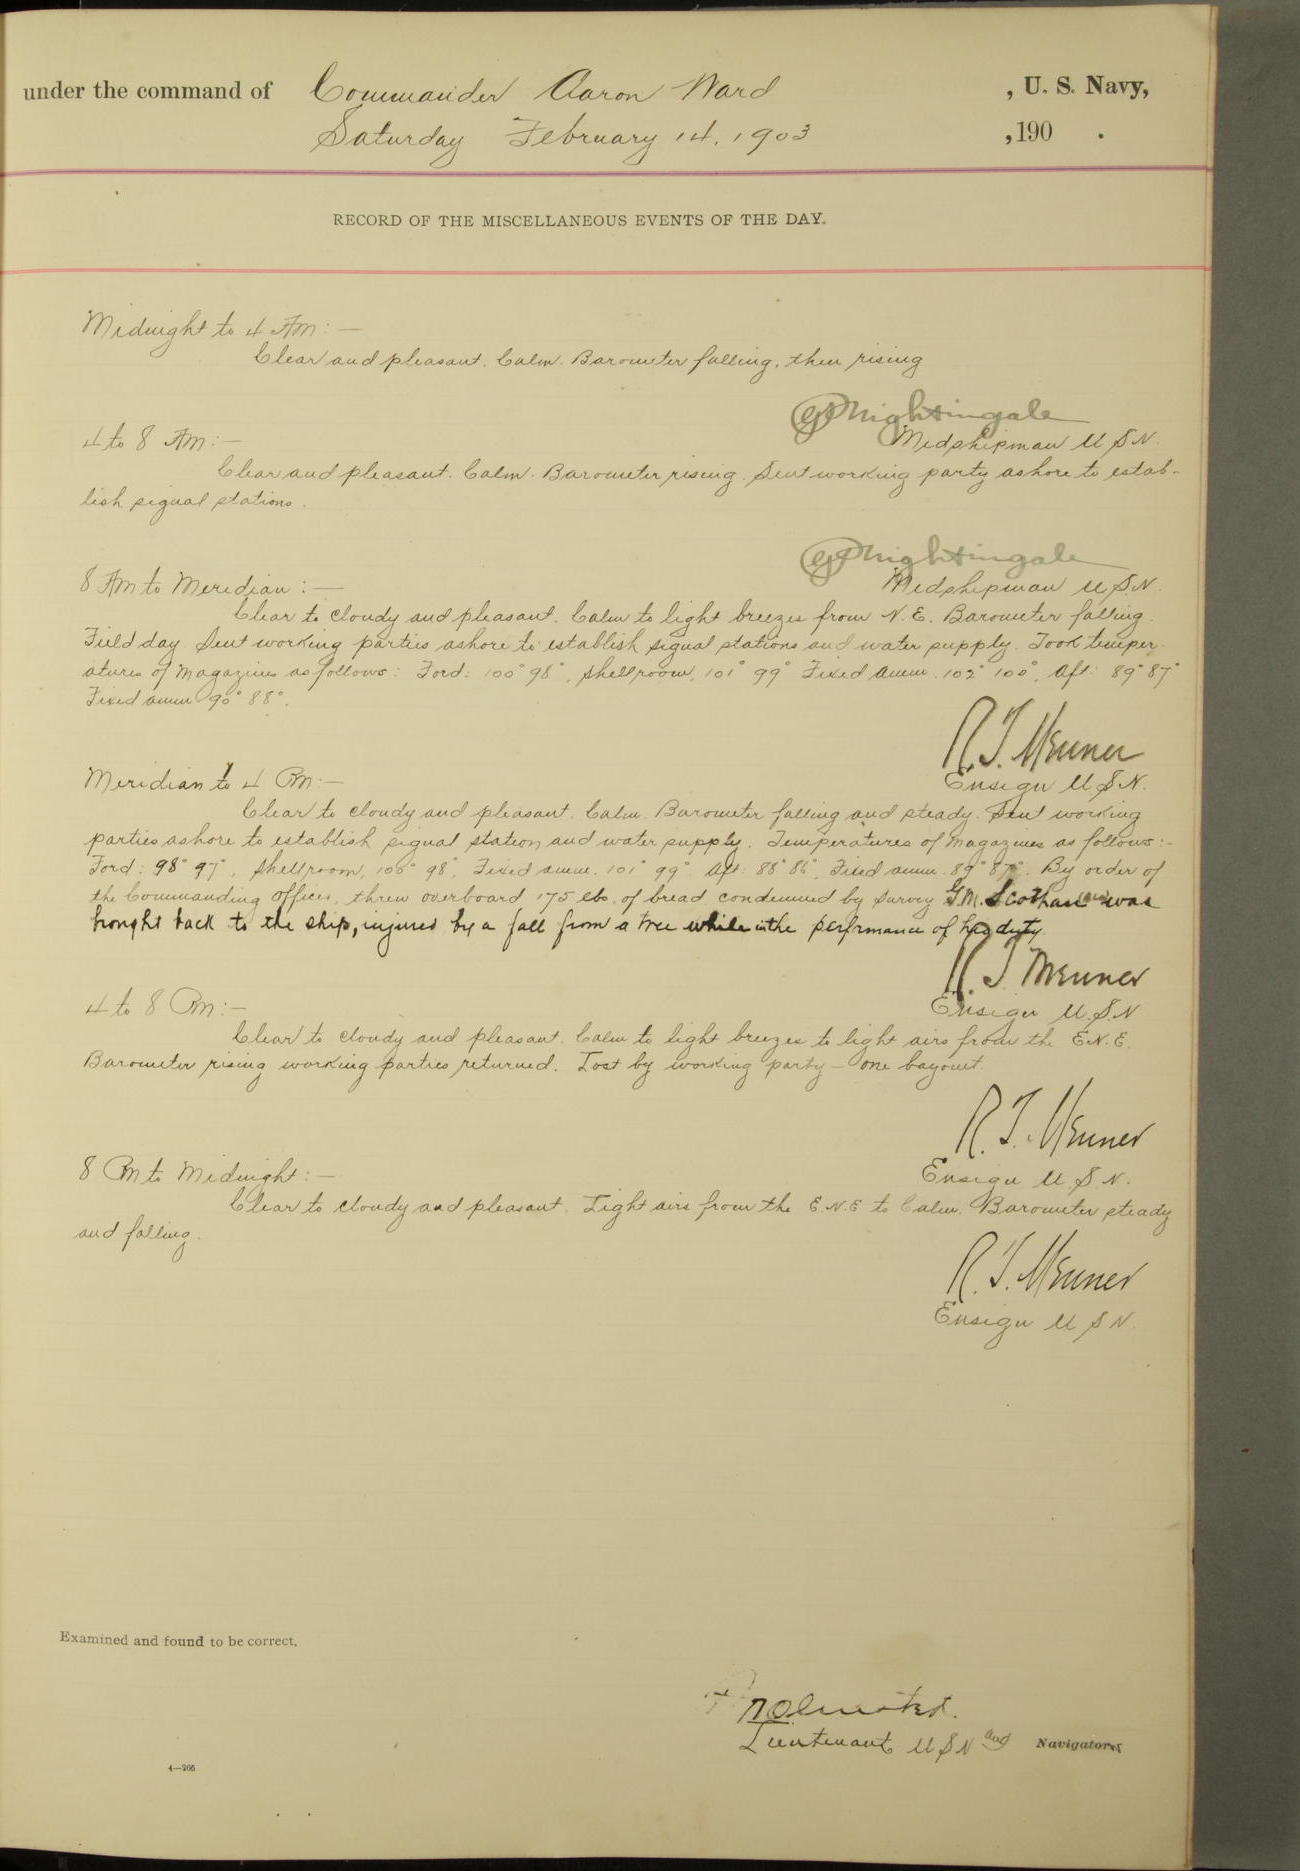 under the command of Commander Aaron Ward , U. S. Navy,
Saturday February 14, 1903 ,190 .
RECORD OF THE MISCELLANEOUS EVENTS OF THE DAY.
Midnight to 4 AM:—
Clear and pleasant. Calm. Barometer falling, then rising
Nightingale
Midshipman U S N.
4 to 8 AM:—
Clear and pleasant. Calm. Barometer rising. Sent working party ashore to estab-
lish signal stations.
Nightingale
Midshipman U S N.
8 AM to Meridian:—
Clear to cloudy and pleasant. Calm to light breezes from N. E. Barometer falling.
Field day. Sent working parties ashore to establish signal stations and water supply. Took temper-
atures of Magazines as follows: Ford: 100° 98°, Shellroom, 101° 99° Fixed amm. 102° 100°, Aft: 89° 87°
Fixed amm 90° 88°.
R. T. Menner
Ensign U S N.
Meridian to 4 PM:—
Clear to cloudy and pleasant. Calm. Barometer falling and steady. Sent working
parties ashore to establish signal station and water supply. Temperatures of Magazines as follows:-
Ford: 98° 97°, Shellroom, 100° 98°, Fixed amm. 101° 99° Aft: 88° 86°, Fixed amm. 89° 87°. By order of
the Commanding Officer, threw overboard 175 lbs. of bread condemned by survey G.M. was
brought back to the ship, injured by a fall from a tree while in the perfrmance of his duty.
R. T. Menner
Ensign U.S.N
4 to 8 PM:—
Clear to cloudy and pleasant. Calm to light breezes to light airs from the E.N.E.
Barometer rising working parties returned. Lost by working party — one bayonet.
R. T. Menner
Ensign U. S. N.
8 PM to Midnight:—
Clear to cloudy and pleasant. Light airs from the E.N.E to Calm. Barometer steady
and falling.
R. T. Menner
Ensign U S N.
Examined and found to be correct.
Lieutenant U S N and Navigator.
4—205